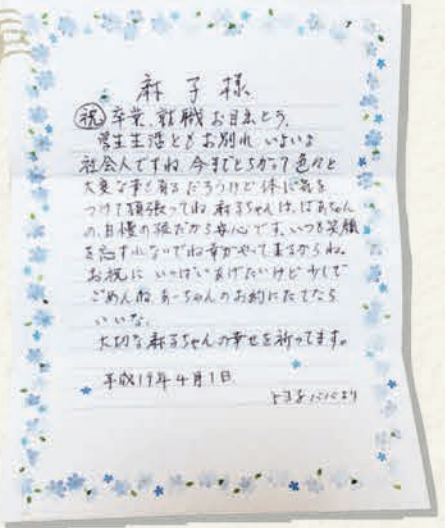 麻子様
祝 卒業、就職 お目出とう、
学生生活ともお別れ いよいよ
社会人ですね 今までとちがって色々と
大変な事も有るだろうけど体に気を
つけて頑張ってね 麻子ちゃんは、ばあちゃん
の、自慢の孫だから安心です、いつも笑顔
を忘すれないでね幸がやって来るからね。
お祝に いっぱいあげたいけど少しで
ごめんね あーちゃんのお役にたてたら
いいな、
大切な麻子ちゃんの幸せを祈ってます。
平成19年4月1日
バババより